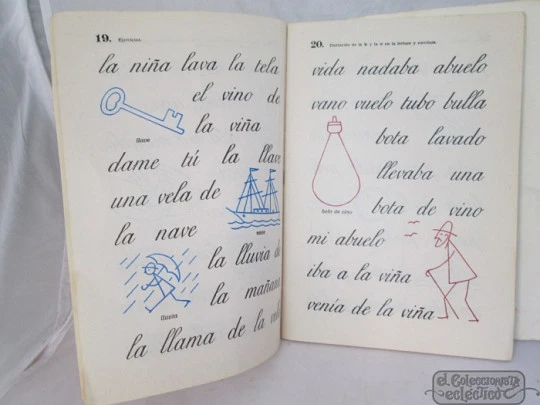 19. Ejercicios.
la niña lava la tela
el vino de
la viña
llave
dame tú la llave
una vela de
la nave
nave
la lluvia de
la mañana
lluvia
la llama de la vela
20.
vida nadaba abuelo
vano vuelo tubo bulla
bota lavado
llevaba una
bota de vino
bota de vino
mi abuelo
iba a la viña
venía de la viña
el Coleccionista
ecléctico